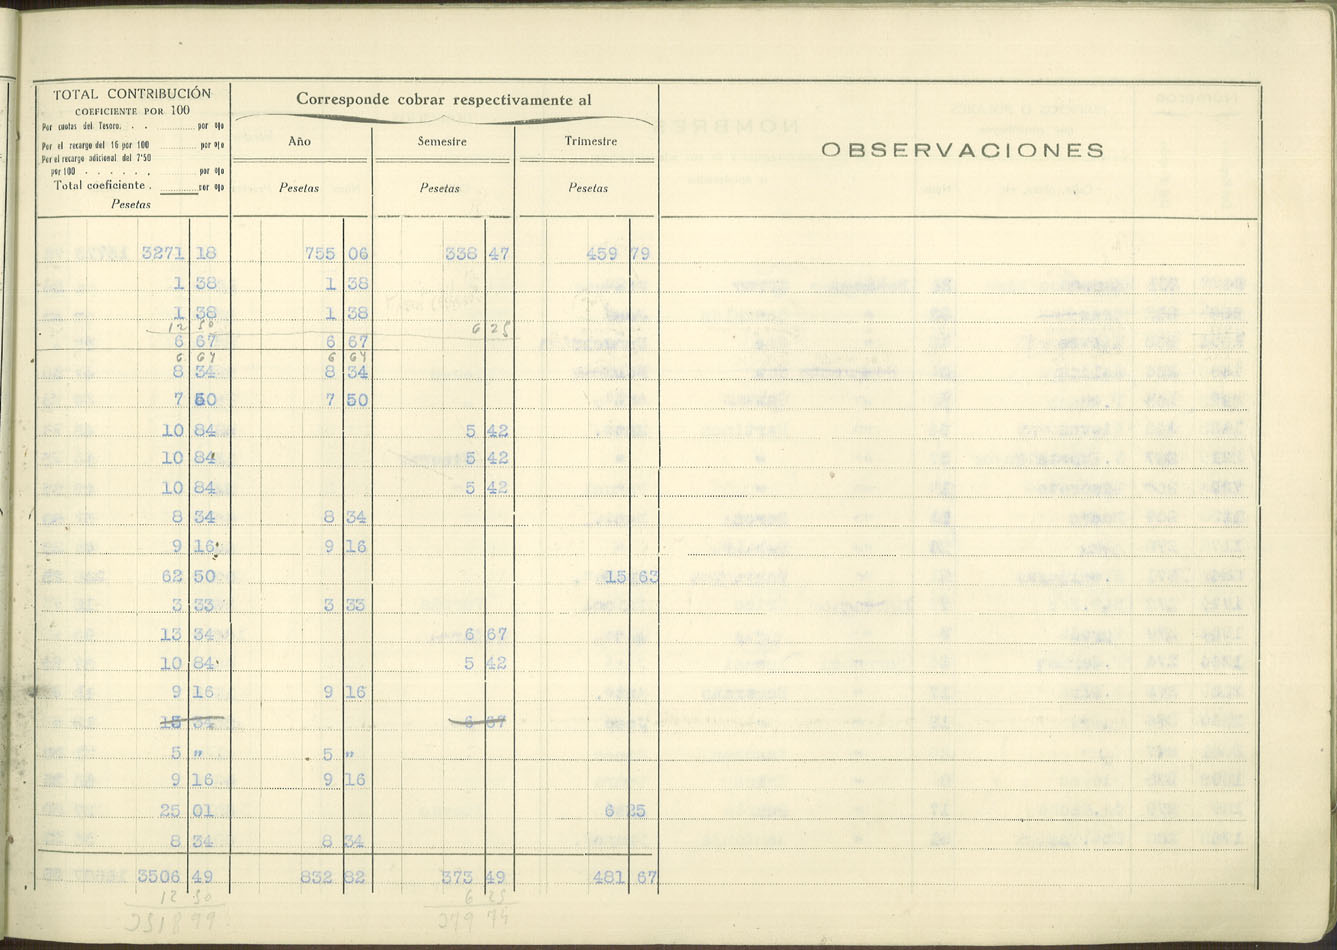 TOTAL CONTRIBUCIÓN
COEFICIENTE POR 100
Por cuotas del Tesoro. . . ........ por 0|0
Por el recargo del 16 por 100 ........ por 0|0
Por el recargo adicional del 7'50
por 100 . . . . . . ........ por 0|0
Total coeficiente . ........ por 0|0
Pesetas
Corresponde cobrar respectivamente al
Año Semestre Trimestre
Pesetas Pesetas Pesetas
OBSERVACIONES
3271 18 755 06 338 47 459 79
1 38 1 38
1 38 1 38
12 50 6 25
6 67 6 67
6 64 6 64
8 34 8 34
7 50 7 50
10 84 5 42
10 84 5 42
10 84 5 42
8 34 8 34
9 16 9 16
62 50 15 63
3 33 3 33
13 34 6 67
10 84 5 42
9 16 9 16
13 34 6 67
5 " 5 "
9 16 9 16
25 01 6 25
8 34 8 34
3506 49 832 82 373 49 481 67
12 50 6 25
3518 99 379 74